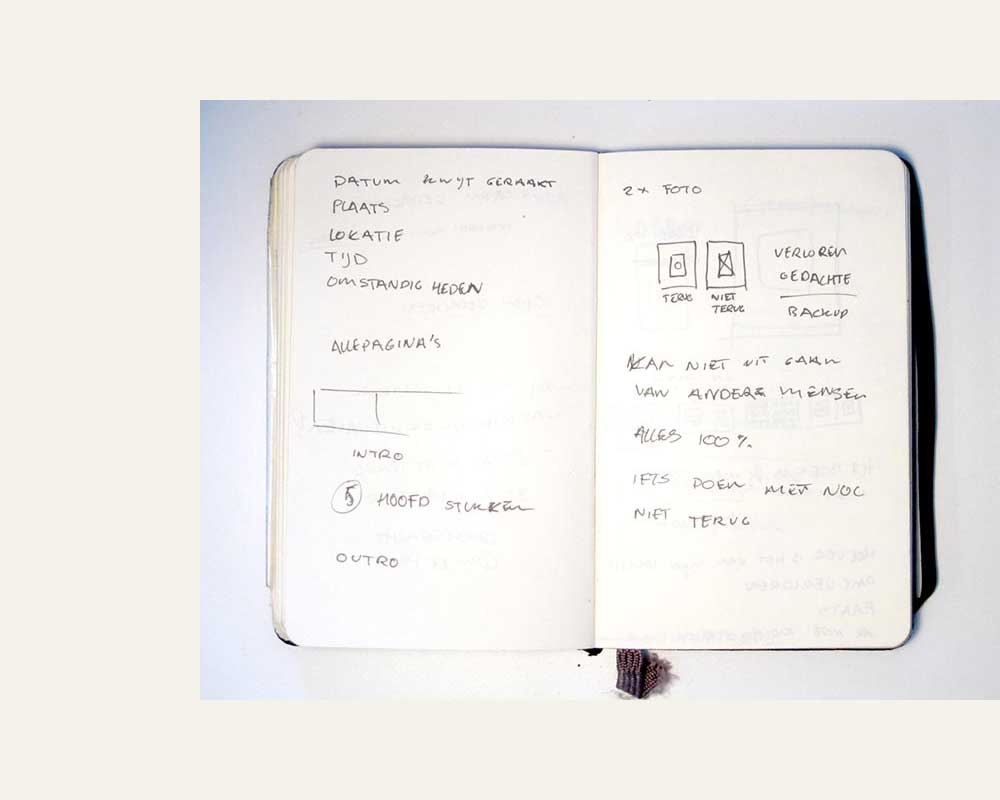 DATUM KWIJT GERAAKT
PLAATS
LOKATIE
TIJD
OMSTANDIG HEDEN
ALLE PAGINA'S
INTRO
5 HOOFD STUKKEN
OUTRO
2x FOTO
TERUG
NIET
TERUG
VERLOREN
GEDACHTE
BACKUP
KAN NIET UIT GAAN
VAN ANDERE MENSEN
ALLES 100%
IETS DOEN MET NOG
NIET TERUG